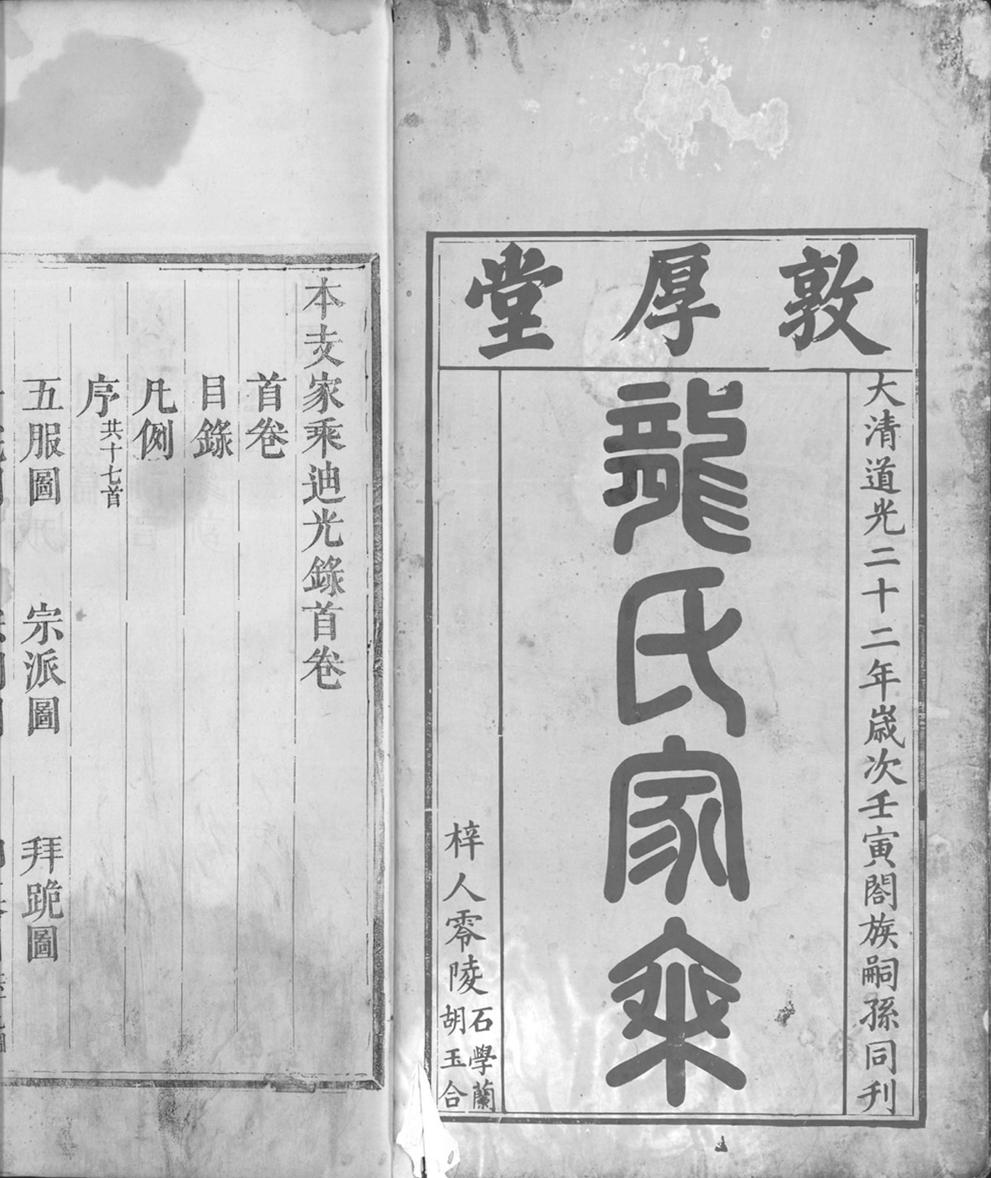 敦厚堂
大清道光二十二年歲次壬寅閤族嗣孫同刋
龍氏家乘
梓人零陵
石學蘭
胡玉合
本支家乘迪光錄首卷
首卷
目錄
凡例
序共十七首
五服圖 宗派圖 拜跪圖